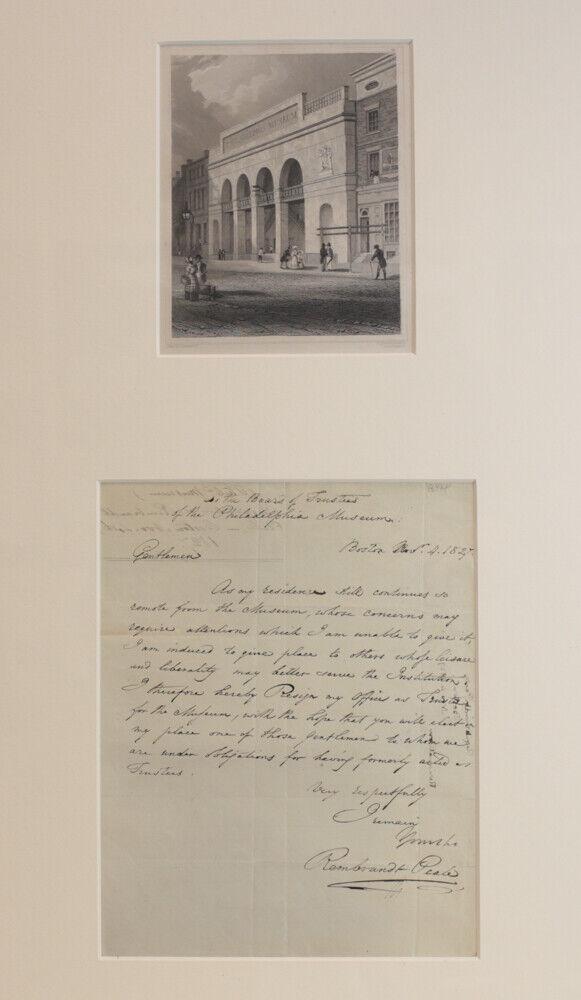 MUSEUM
To the Board of Trustees
of the Philadelphia Museum.
Boston Nov. 4. 1827.
Gentlemen
As my residence still continues so
remote from the Museum, whose concerns may
require attentions which I am unable to give it,
I am induced to give place to others whose leisure
and liberality may better serve the Institution.
I therefore hereby Resign my Office as Trustee
for the Museum, with the hope that you will elect in
my place one of those Gentlemen to whom we
are under obligations for having formerly acted as
Trustees.
Very respectfully
I remain
Yours &c
Rembrandt Peale